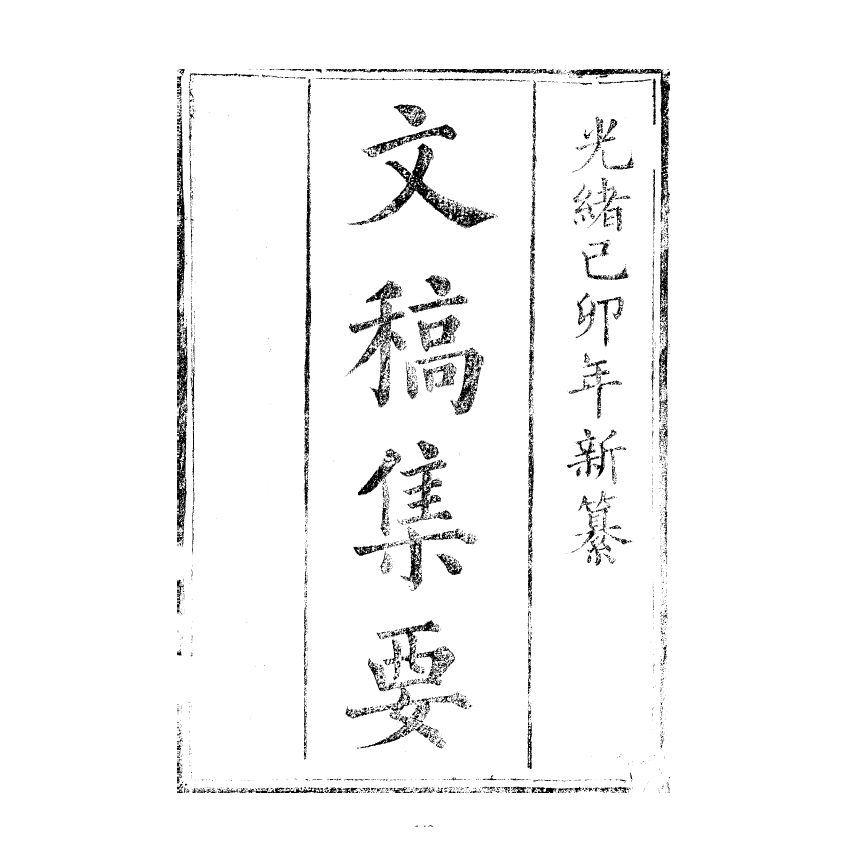 光緒己卯年新纂
文稿集要